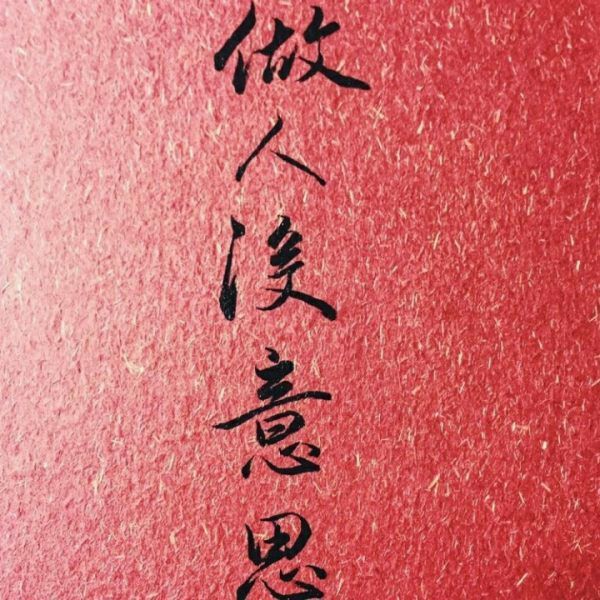 做人没意思